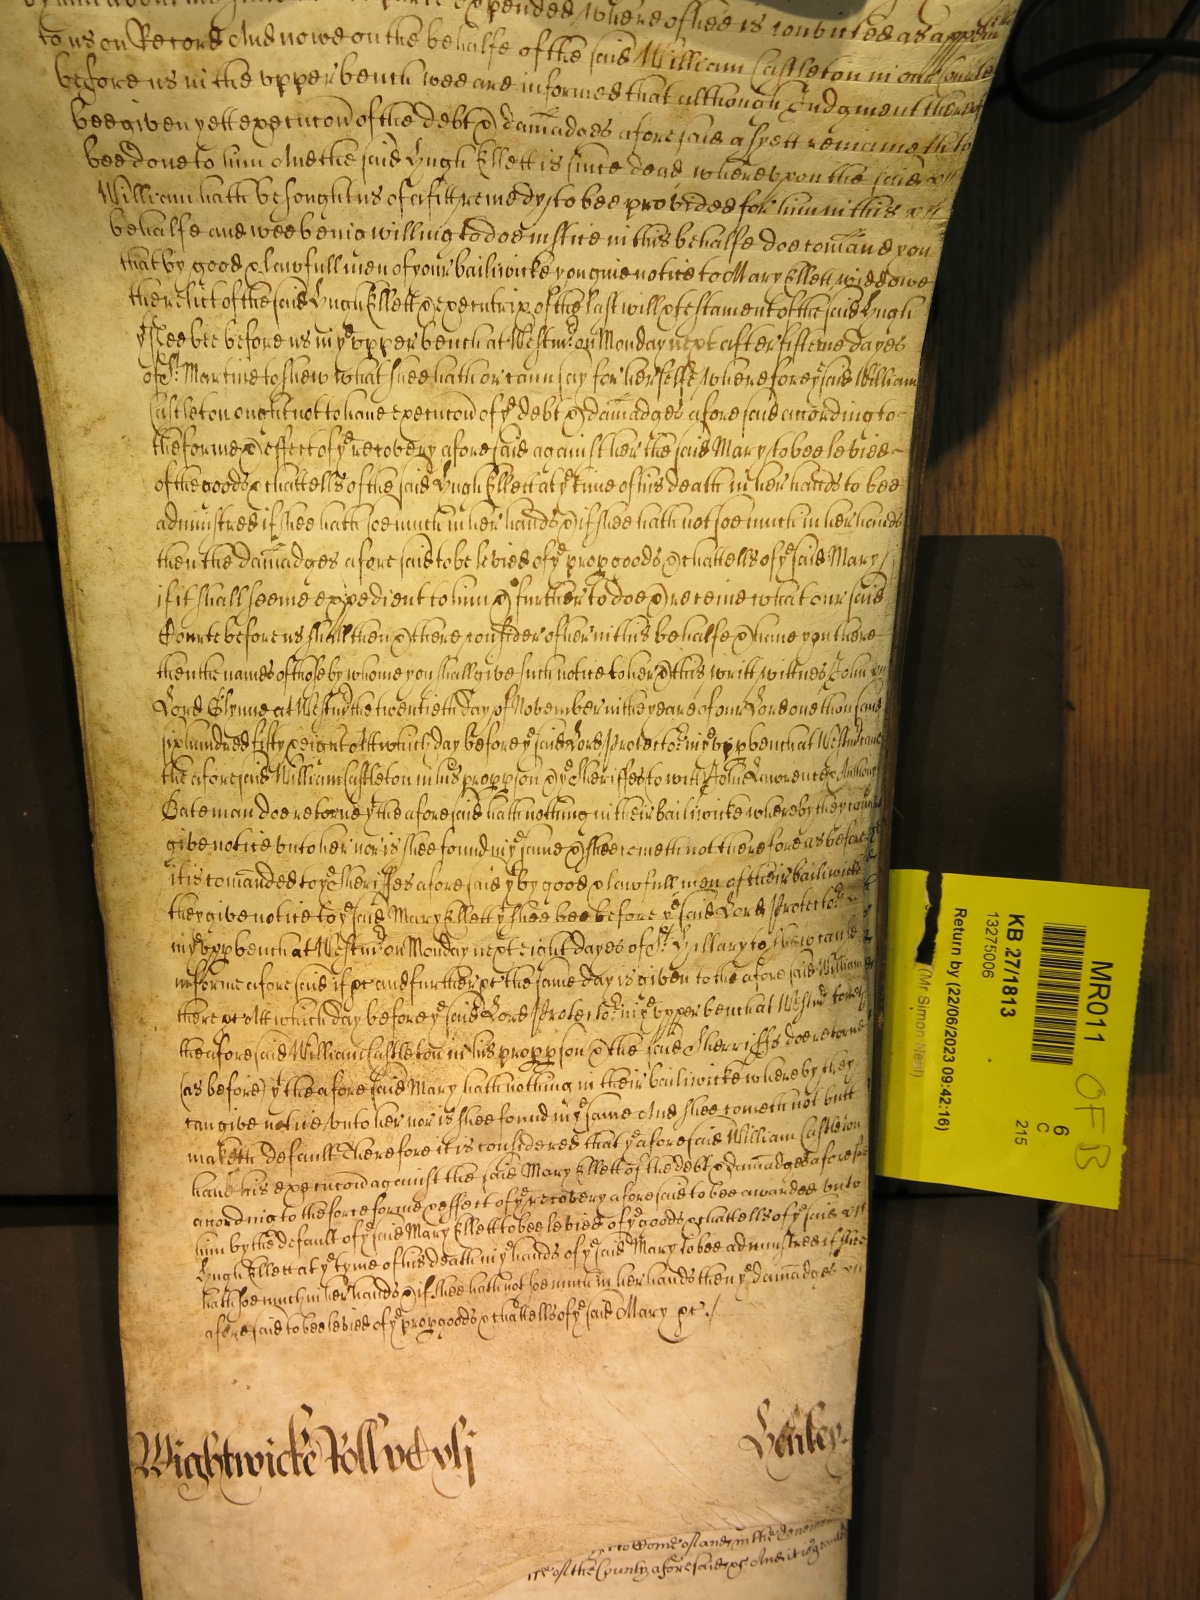 expended where of hee is convicted as appeares
to us on Record And nowe on the behalfe of the said William Castleton in our Courte
before us in the upper bench wee are informed that although Judgment thereof
bee given yett execucon of the debt & damadges aforesaid as yett remaineth to
bee done to him And the said Hugh Ellett is since dead whereupon the said
William hath besought us of a fitt remedy to bee provided for him in this
behalfe and wee being willing to doe justice in this behalfe doe comand you
that by good & lawfull men of your bailiwicke you give notice to Mary Ellett widdowe
the relict of the said Hugh Ellett & executrix of the last will & testament of the said Hugh
yt shee bee before us in ye upper bench at Westmr on Monday next after fifteene dayes
of St Martine to shew what shee hath or cann say for herselfe wherefore ye said William
Castleton ought not to have execucon of ye debt & damadges aforesaid according to
the forme & effect of ye recovery aforesaid against her the said Mary to bee levied
of the goods & chattells of the said Hugh Ellett at ye time of his death in her hands to bee
administred if shee hath soe much in her hands & if shee hath not soe much in her hands
then the damadges aforesaid to be levied of ye proper goods & chattells of ye said Mary
if it shall seeme expedient to him & further to doe & receive what our said
Courte before us shall then & there consider of her in this behalfe & have you there
then the names of those by whome you shall give such notice to her & this writt witnes John
Lord Glynne at Westmr the twentieth day of November in the yeare of our Lord one thousand
six hundred fifty & eight Att which day before ye said Lord Protector in ye upp bench at Westmr came
the aforesaid William Castleton in his propp pson & ye Sheriffes to witt John Lawrence & Anthony
Bateman doe retorne yt the aforesaid hath nothing in their bailiwicke whereby they cann
give notice unto her nor is shee found in ye same & shee cometh not therefore as before
it is comanded to ye Sheriffes aforesaid yt by good & lawfull men of their bailiwicke
they give notice to ye said Mary Ellett yt shee bee before ye said Lord Protector
in ye upp bench at Westmr on Monday next eight dayes of St Hillary to shew cause
in forme aforesaid if &c and further &c the same day is given to the aforesaid William
there &c Att which day before ye said Lord Protector in ye upper bench at Westmr cometh
the aforesaid William Castleton in his propp pson & the said Sherriffs doe retorne
(as before) yt the aforesaid Mary hath nothing in their bailiwicke whereby they
can give notice unto her nor is shee found in ye same And shee cometh not butt
maketh default Therefore it is considered that ye aforesaid William Castleton
have his execucon against the said Mary Ellett of the debt & damadges aforesaid
according to the force forme & effect of ye recovery aforesaid to bee awarded unto
him by the default of ye said Mary Ellett to bee levied of ye goods & chattells of ye said
Hugh Ellett at ye tyme of his death in ye hands of ye said Mary to bee administred if shee
hath soe much in her hands & if shee hath not soe much in her hands then ye damadges
aforesaid to bee levied of ye prop goods & chattells of ye said Mary &c./
Wightwicke Roll
Henley
of the County aforesaid &c And it is graunted
MR011
OFB
6
C
215
KB 27/1813
13275006
Return by (22/06/2023 09:42:16)
(Mr Simon Neal)